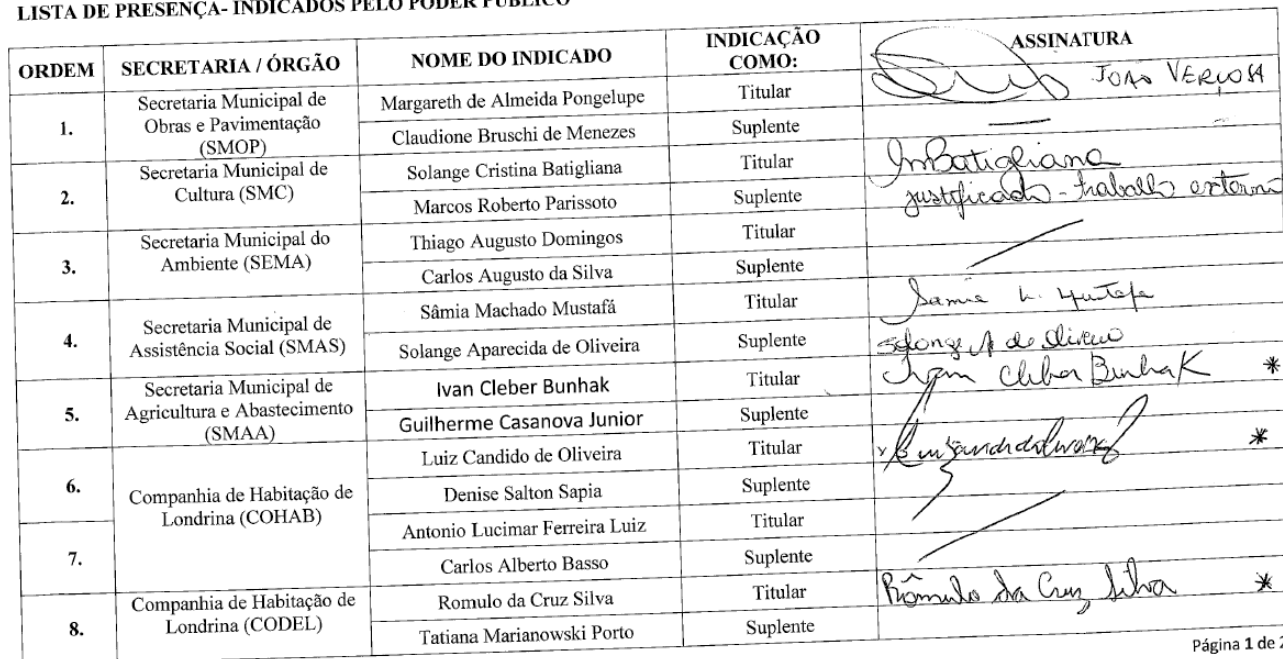 LISTA DE PRESENÇA- INDICADOS PELO PODER PÚBLICO
ORDEM SECRETARIA / ÓRGÃO NOME DO INDICADO INDICAÇÃO COMO: ASSINATURA
1. Secretaria Municipal de Obras e Pavimentação (SMOP)
Margareth de Almeida Pongelupe Titular JOÃO VERÇOSA
Claudione Bruschi de Menezes Suplente —
2. Secretaria Municipal de Cultura (SMC)
Solange Cristina Batigliana Titular Batigliana
Marcos Roberto Parissoto Suplente justificado - trabalho externo
3. Secretaria Municipal do Ambiente (SEMA)
Thiago Augusto Domingos Titular
Carlos Augusto da Silva Suplente
4. Secretaria Municipal de Assistência Social (SMAS)
Sâmia Machado Mustafá Titular Samia M. Mustafa
Solange Aparecida de Oliveira Suplente Solange A de Oliveira
5. Secretaria Municipal de Agricultura e Abastecimento (SMAA)
Ivan Cleber Bunhak Titular Ivan Cleber Bunhak *
Guilherme Casanova Junior Suplente
6. Companhia de Habitação de Londrina (COHAB)
Luiz Candido de Oliveira Titular *
Denise Salton Sapia Suplente
7.
Antonio Lucimar Ferreira Luiz Titular
Carlos Alberto Basso Suplente
8. Companhia de Habitação de Londrina (CODEL)
Romulo da Cruz Silva Titular Rômulo da Cruz Silva *
Tatiana Marianowski Porto Suplente
Página 1 de 2